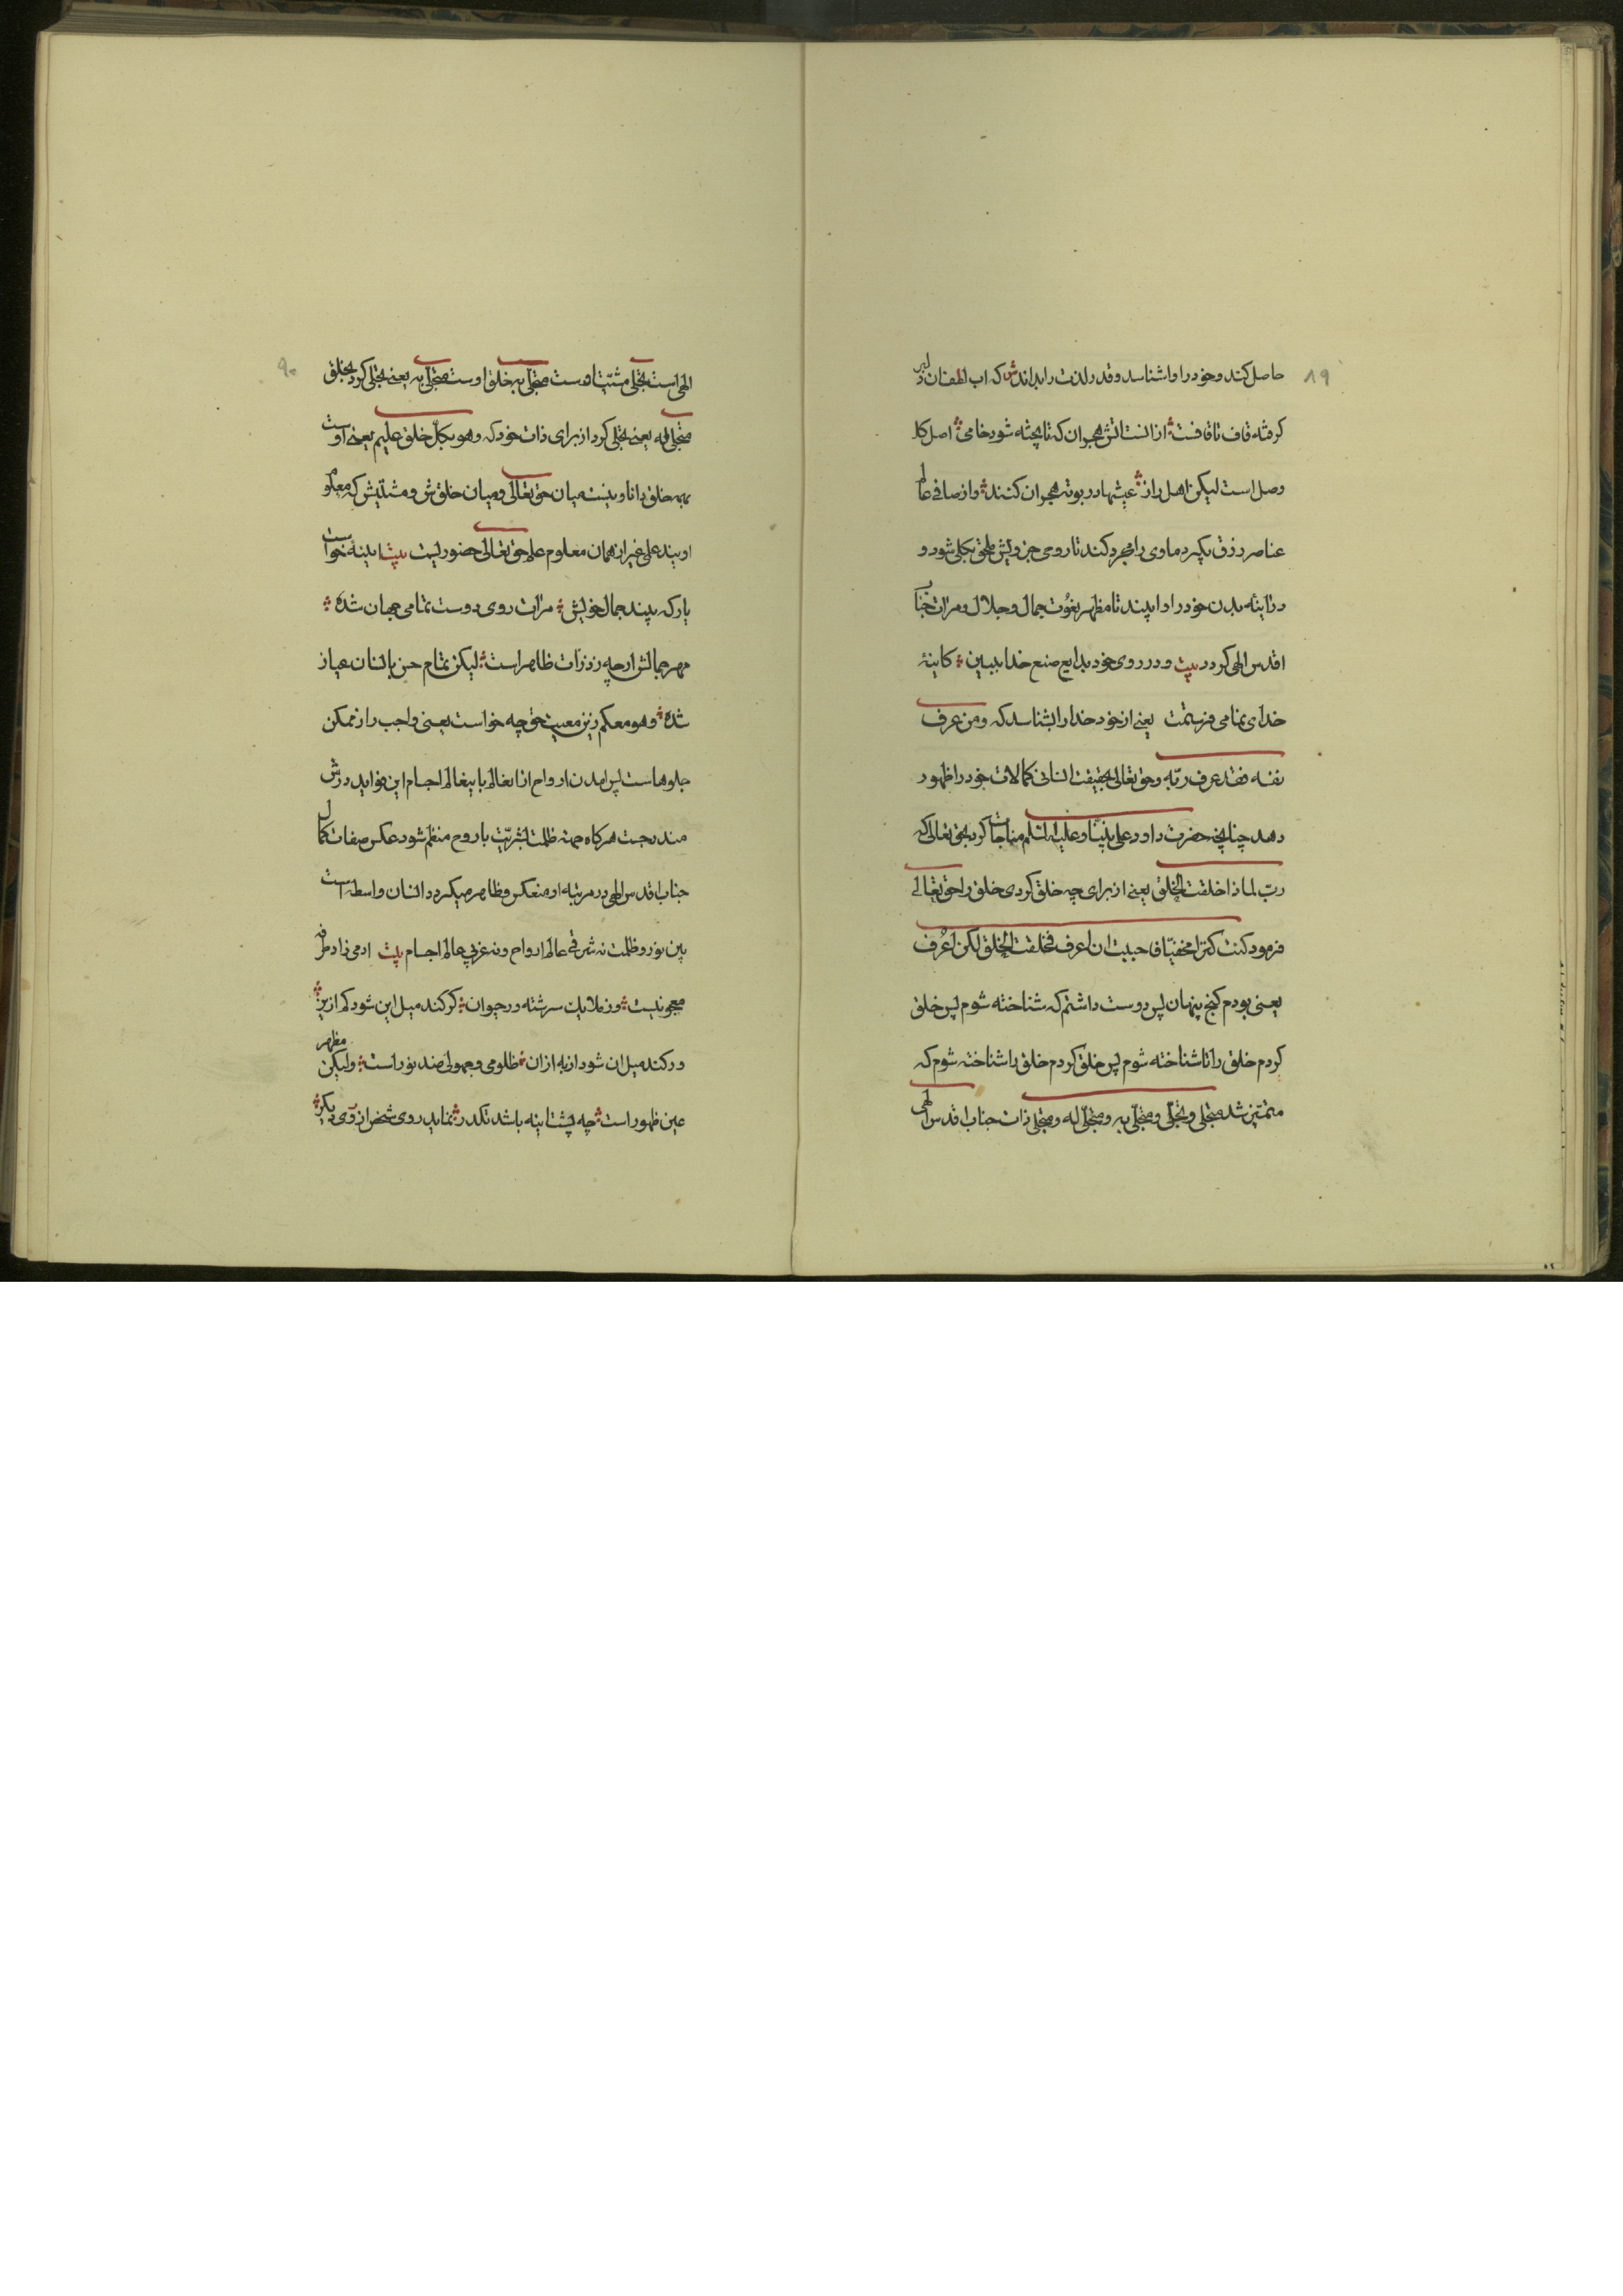 ۸۹
حاصل کند و خود را واشناسد و قدر لذت را بداند ش که اب لطفتان دلبر
کرفته قاف تا قافست ؞ از انست اتش هجران که تا پخته شود خامی ؞ اصل کار
وصل است لیکن اهل راز ؞ عیبها در بوته هجران کنند ؞ و از صافی عالم
عناصر رزق بکیرد ماوی را مجرد کند تا روی جزویش ملحق بکلی شود و
در اینه بدن خود را وا بیند تا مظهر نعوت جمال و جلال و مرات جناب
اقدس الهی کردد بیت و در روی خود بدایع صنع خدا ببین ؞ کاینهٔ
خدای نمامی فرستمت یعنی از خود خدا را بشناسد که و من عرف
نفسه فقد عرف ربّه و حق تعالی بحقیقت انسانی کمالات خود را ظهور
دهد چنانچه حضرت داود علی نبینا و علیه السلم مناجات کرد بحق تعالی که
ربّ لماذا خلقت الخلق یعنی از برای چه خلق کردی خلق را حق تعالی
فرمود کنت کنزا مخفیّا فاحببت ان اعرف فخلقت الخلق لکن اُعرف
یعنی بودم کنج پنهان پس دوست داشتم که شناخته شوم پس خلق
کردم خلق را تا شناخته شوم پس خلق کردم خلق را شناخته شوم که
متمیّز شد متجلی و تجلّی و متجلّی به و متجلّی له و متجلی ذات جناب اقدس الهی
۹۰
الهی است تجلی مشیّت اوست متجلّی به خلق اوست متجلّی به یعنی تجلی کرد بخلق
متجلی له یعنی تجلی کرد از برای ذات خود که و هو بکلّ خلق علیم یعنی اوست
بهمه خلق دانا و نیست میان حق تعالی و میان خلقش و مشیّتش که معلوم
او بیند علمی غیر از همان معلوم علم حق تعالی حضوریست بیت اینه خواست
یار که بیند جمال خویش ؞ مرات روی دوست تمامی جهان شده ؞
مهر جمالش ارچه ز ذرات ظاهر است ؞ لیکن تمام حسن بانسان عیان
شده ؞ و هو معکم زین معیت حق چه خواست یعنی واجب را ز ممکن
جلوهاست پس امدن ارواح از انعالم باینعالم اجسام این فواید درش
مندرجست هرکاه جهته ظلمت بشریّت با روح منضم شود عکس صفات کمال
جناب اقدس الهی در مرتبه او منعکس و ظاهر میکردد انسان واسطه است
بین نور و ظلمت نه شرقی عالم ارواح و نه غربی عالم اجسام بیت ادمی زاد طرفه
معجونیست ؞ وز ملایک سرشته و ز حیوان ؞ کر کند میل این شود کم ازین ؞
ور کند میل ان شود از به از ان ؞ ظلومی و جهولی ضد نور است ؞ ولیکن مظهر
عین ظهور است ؞ چه پشت اینه باشد تکدر ؞ نماید روی شخص از روی دیکر ؞